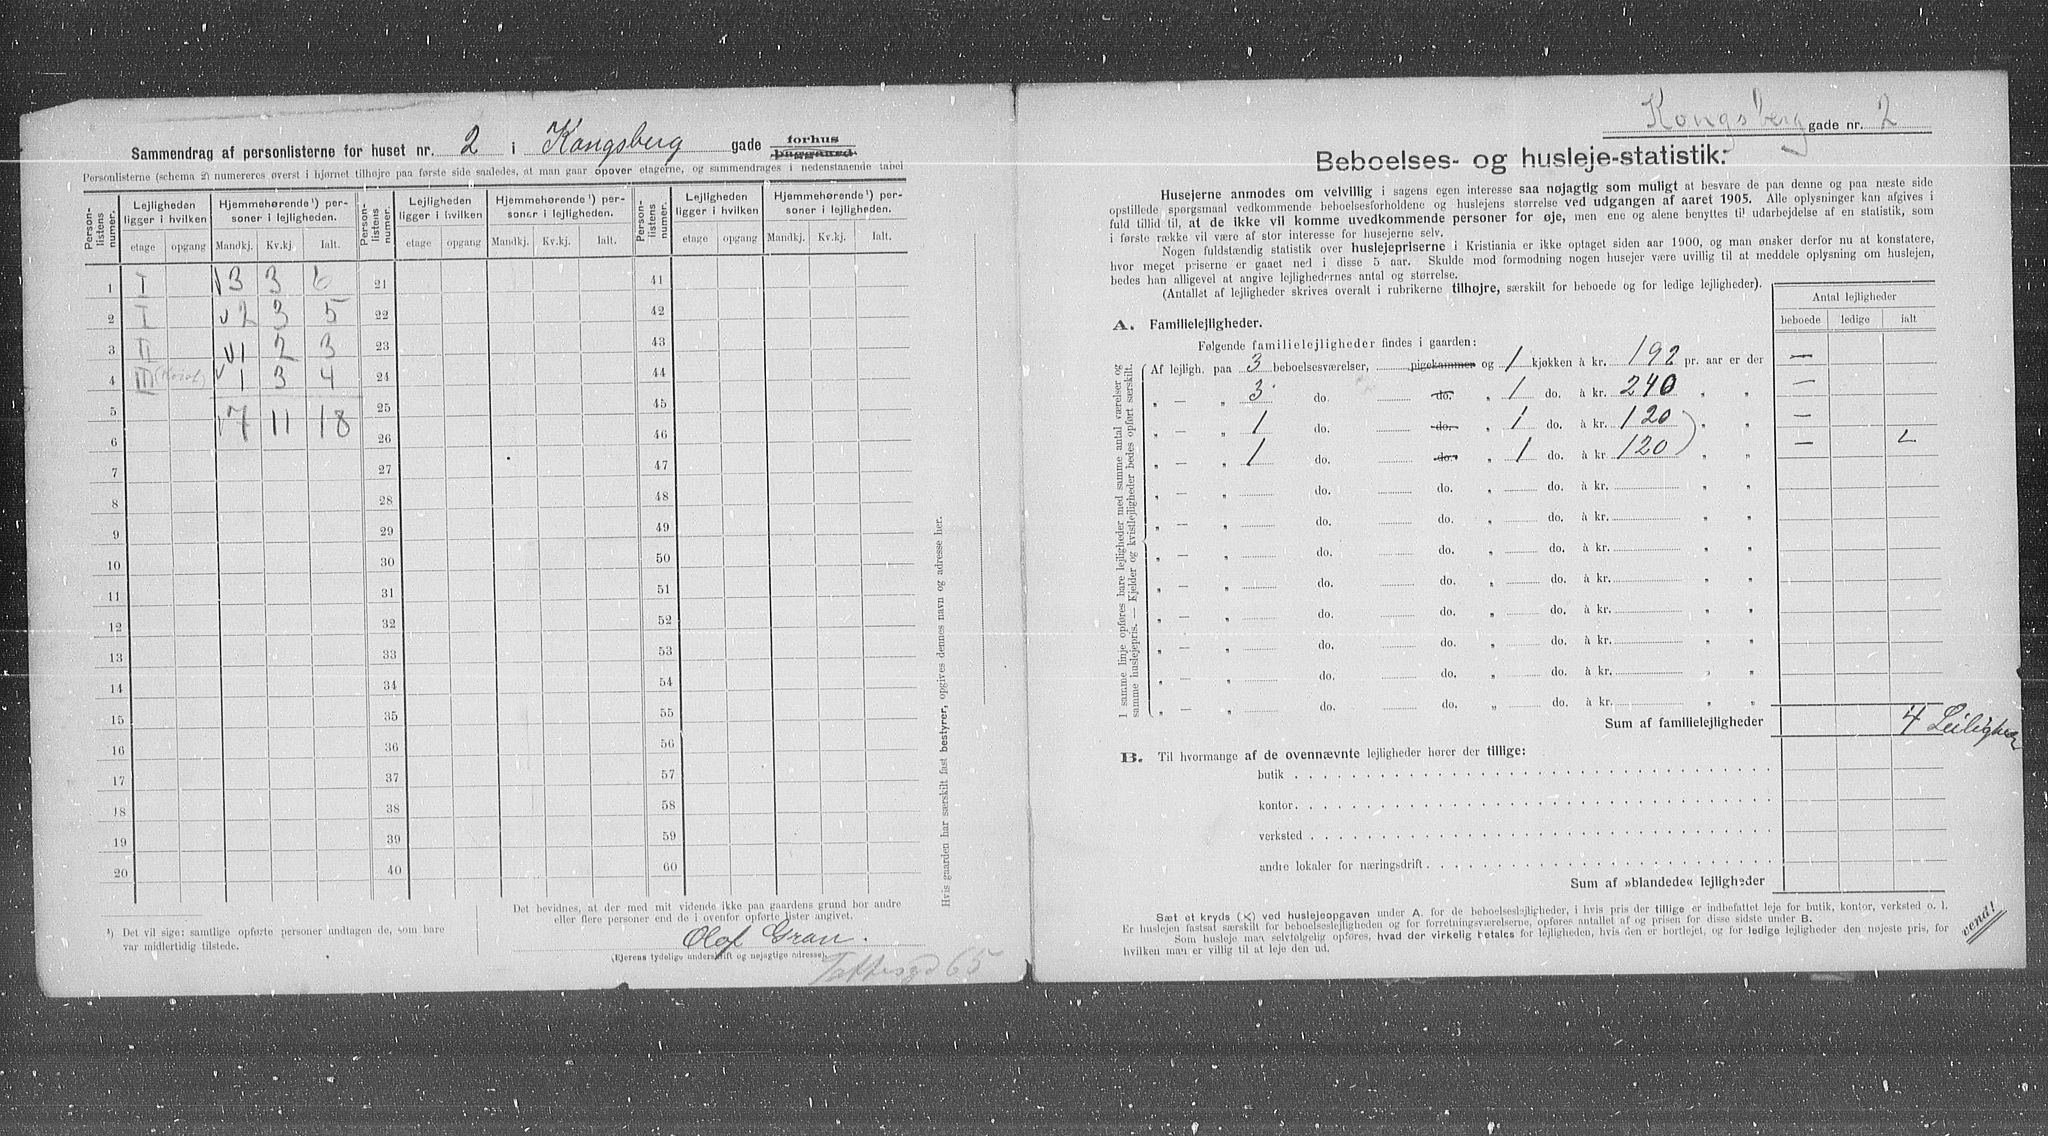 Sammendrag af personlisterne for huset nr. 2 i Kongsberg gade forhus baggaard.
Personlisterne (schema 2) numereres øverst i hjørnet tilhøjre paa første side saaledes, at man gaar opover etagerne, og sammendrages i nedenstaaende tabel
Personlistens nummer. Lejligheden ligger i hvilken Hjemmehørende¹) personer i lejligheden. Personlistens nummer. Lejligheden ligger i hvilken Hjemmehørende¹) personer i lejligheden. Personlistens nummer. Lejligheden ligger i hvilken Hjemmehørende¹) personer i lejligheden.
etage opgang Mandkj. Kv.kj. Ialt. etage opgang Mandkj. Kv.kj. Ialt. etage opgang Mandkj. Kv.kj. Ialt.
1 I 3 3 6 21 41
2 I 2 3 5 22 42
3 II 1 2 3 23 43
4 III (Kvist) 1 3 4 24 44
5 7 11 18 25 45
6 26 46
7 27 47
8 28 48
9 29 49
10 30 50
11 31 51
12 32 52
13 33 53
14 34 54
15 35 55
16 36 56
17 37 57
18 38 58
19 39 59
20 40 60
¹) Det vil sige: samtlige opførte personer undtagen de, som bare
var midlertidig tilstede.
Det bevidnes, at der med mit vidende ikke paa gaardens grund bor andre
eller flere personer end de i ovenfor opførte lister angivet.
Olof Gran.
(Ejerens tydelige underskrift og nøjagtige adresse).
65
Hvis gaarden har særskilt fast bestyrer, opgives dennes navn og adresse her.
Kongsberg gade nr. 2
Beboelses- og husleje-statistik:
Husejerne anmodes om velvillig i sagens egen interesse saa nøjagtig som muligt at besvare de paa denne og paa næste side
opstillede spørgsmaal vedkommende beboelsesforholdene og huslejens størrelse ved udgangen af aaret 1905. Alle oplysninger kan afgives i
fuld tillid til, at de ikke vil komme uvedkommende personer for øje, men ene og alene benyttes til udarbejdelse af en statistik, som
i første række vil være af stor interesse for husejerne selv.
Nogen fuldstændig statistik over huslejepriserne i Kristiania er ikke optaget siden aar 1900, og man ønsker derfor nu at konstatere,
hvor meget priserne er gaaet ned i disse 5 aar. Skulde mod formodning nogen husejer være uvillig til at meddele oplysning om huslejen,
bedes han alligevel at angive lejlighedernes antal og størrelse.
(Antallet af lejligheder skrives overalt i rubrikerne tilhøjre, særskilt for beboede og for ledige lejligheder).
Antal lejligheder
beboede ledige ialt
A. Familielejligheder.
Følgende familielejligheder findes i gaarden:
Af lejligh. paa 3 beboelsesværelser, pigekammer og 1 kjøkken à kr. 192 pr. aar er der —
„ — „ 3 do. do. „ 1 do. à kr. 240 „ „ —
„ — „ 1 do. do. „ 1 do. à kr. 120 „ „ —
„ — „ 1 do. do. „ 1 do. à kr. 120 „ „ —
„ — „ do. do. „ do. à kr. „ „
„ — „ do. do. „ do. à kr. „ „
„ — „ do. do. „ do. à kr. „ „
„ — „ do. do. „ do. à kr. „ „
„ — „ do. do. „ do. à kr. „ „
„ — „ do. do. „ do. à kr. „ „
„ — „ do. do. „ do. à kr. „ „
„ — „ do. do. „ do. à kr. „ „
I samme linje opføres bare lejligheder med samme antal værelser og
samme huslejepris. — Kjelder og kvistlejligheder bedes opført særskilt.
Sum af familielejligheder 4
B. Til hvormange af de ovennævnte lejligheder hører der tillige:
butik
kontor
verksted
andre lokaler for næringsdrift
Sum af »blandede« lejligheder
Sæt et kryds (×) ved huslejeopgaven under A. for de beboelseslejligheder, i hvis pris der tillige er indbefattet leje for butik, kontor, verksted o. l.
Er huslejen fastsat særskilt for beboelseslejligheden og for forretningsværelserne, opføres antallet af og prisen for disse sidste under B.
Som husleje maa selvfølgelig opføres, hvad der virkelig betales for lejligheden, hvis den er bortlejet, og for ledige lejligheder den nøjeste pris, for
hvilken man er villig til at leje den ud.
vend!